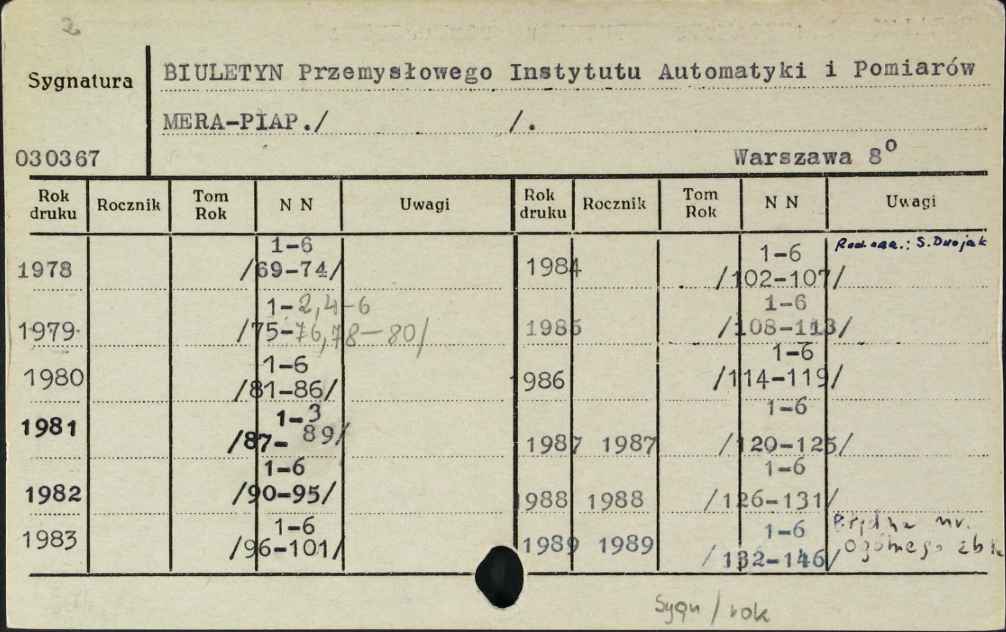 2
Sygnatura
BIULETYN Przemysłowego Instytutu Automatyki i Pomiarów
MERA-PIAP./ /.
030367
Warszawa 8º
Rok druku Rocznik Tom Rok N N Uwagi Rok druku Rocznik Tom Rok N N Uwagi
1978 1-6 /69-74/
1979 1-2,4-6 /75-76,78-80/
1980 1-6 /81-86/
1981 1-3 /87-89/
1982 1-6 /90-95/
1983 1-6 /96-101/
1984 1-6 /102-107/ S. Dwojak
1985 1-6 /108-113/
1986 1-6 /114-119/
1987 1987 1-6 /120-125/
1988 1988 1-6 /126-131/
1989 1989 1-6 /132-146/ nr. ogólnego
Sygn/rok